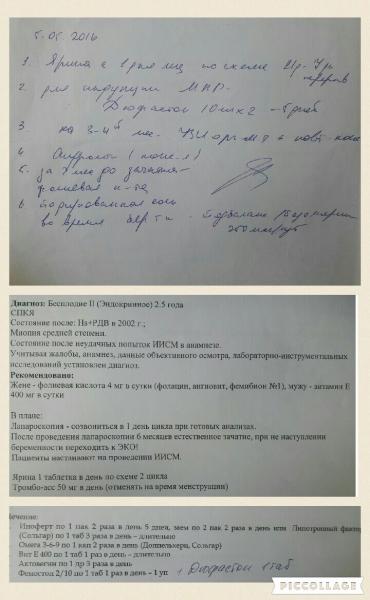 5.05.2016
1. Ярина с 1 дня мц по схеме 21р - 7р перерыв
2. для индукции МПР -
Дюфастон 10мг х 2 - 5 дней
3.
4.
5. за до зачатия -
фолиевая к-та
6. йодированная соль
во время бер-ти -
Диагноз: Бесплодие II (Эндокринное) 2.5 года
СПКЯ
Состояние после: На+РДВ в 2002 г.;
Миопия средней степени.
Состояние после неудачных попыток ИИСМ в анамнезе.
Учитывая жалобы, анамнез, данные объективного осмотра, лабораторно-инструментальных
исследований установлен диагноз.
Рекомендовано:
Жене - фолиевая кислота 4 мг в сутки (фолацин, ангиовит, фемибион №1), мужу - витамин Е
400 мг в сутки
В плане:
Лапароскопия - созвониться в 1 день цикла при готовых анализах.
После проведения лапароскопии 6 месяцев естественное зачатие, при не наступлении
беременности переходить к ЭКО!
Пациенты настаивают на проведении ИИСМ.
Ярина 1 таблетка в день по схеме 2 цикла
Тромбо-асс 50 мг в день (отменять на время менструации)
лечение:
Иноферт по 1 пак 2 раза в день 5 дней, зaем по 2 пак 2 раза в день или Липотропный фактор
(Сольгар) по 1 таб 3 раза в день – длительно
Омега 3-6-9 по 1 кап 2 раза в день (Доппельхерц, Сольгар)
Вит Е 400 по 1 таб 1 раз в день – длительно
Актовегин по 1 др 3 раза в день
Фемостон 2/10 по 1 таб 1 раз в день – 1 уп + Дюфастон 1 таб
PICCOLLAGE